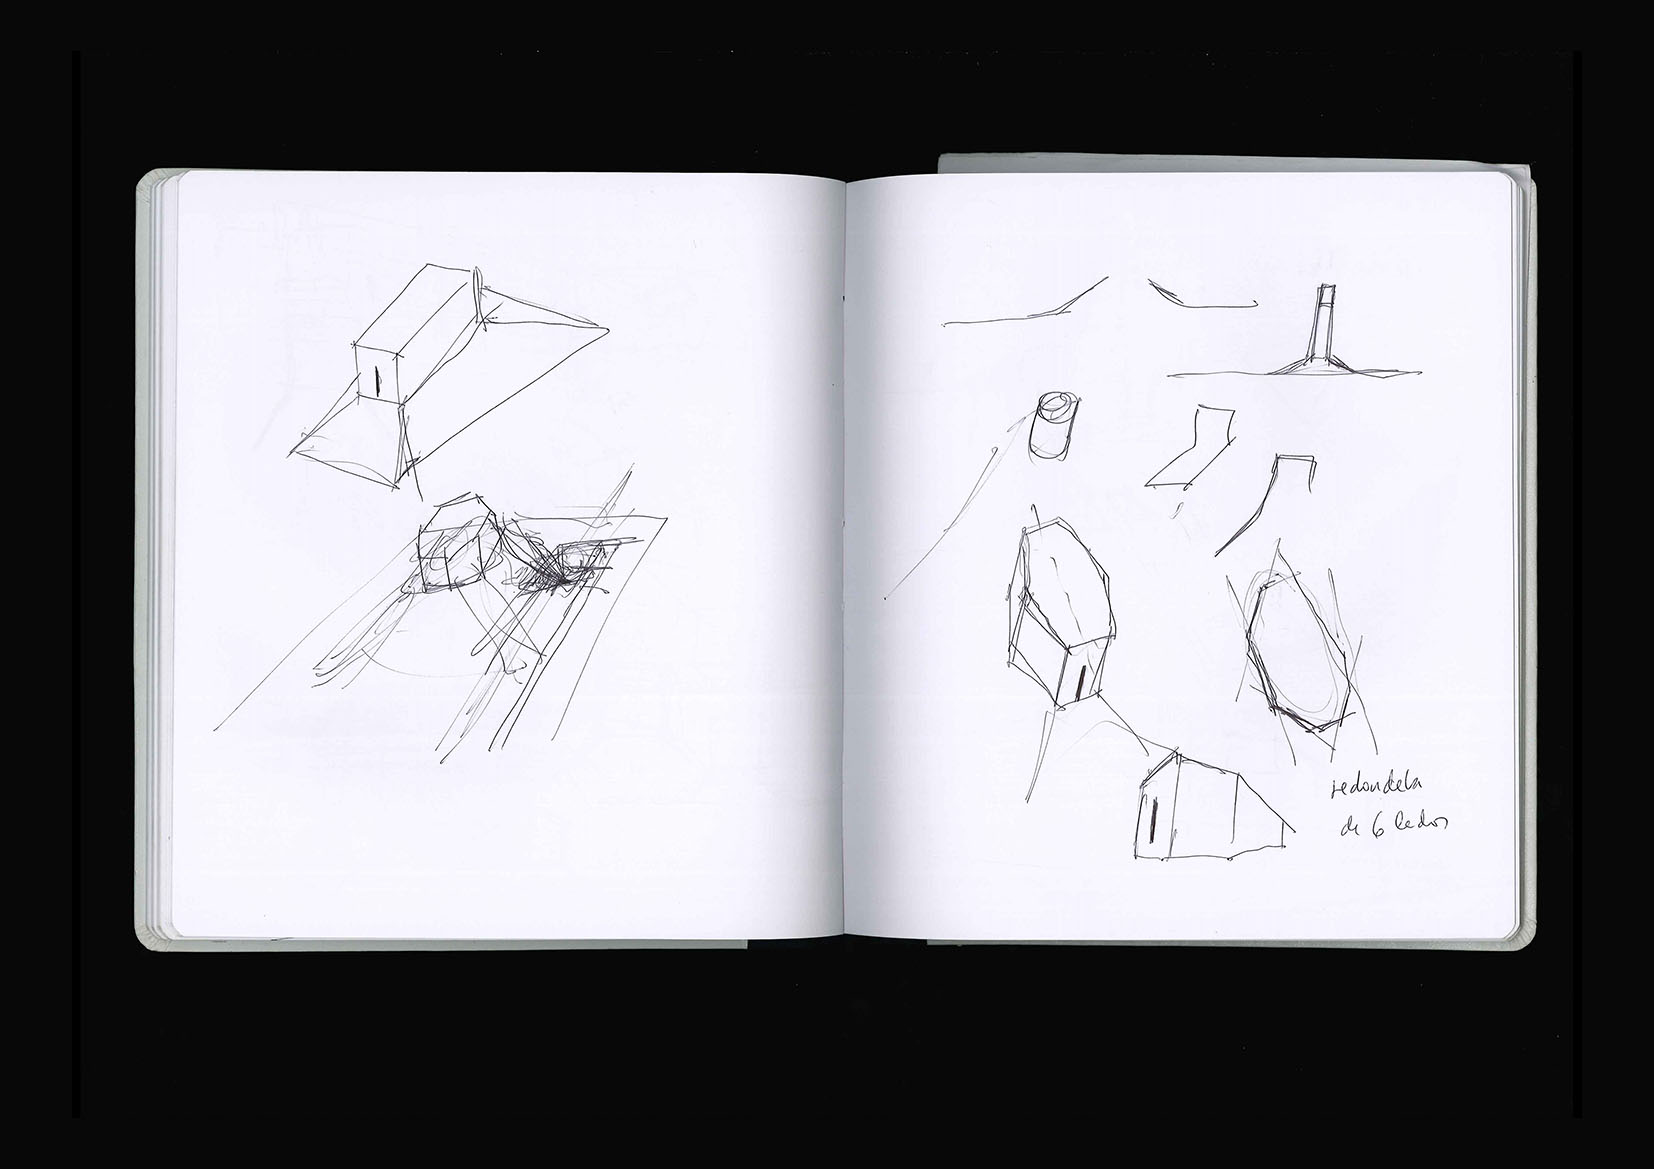 redondela
de 6 lados